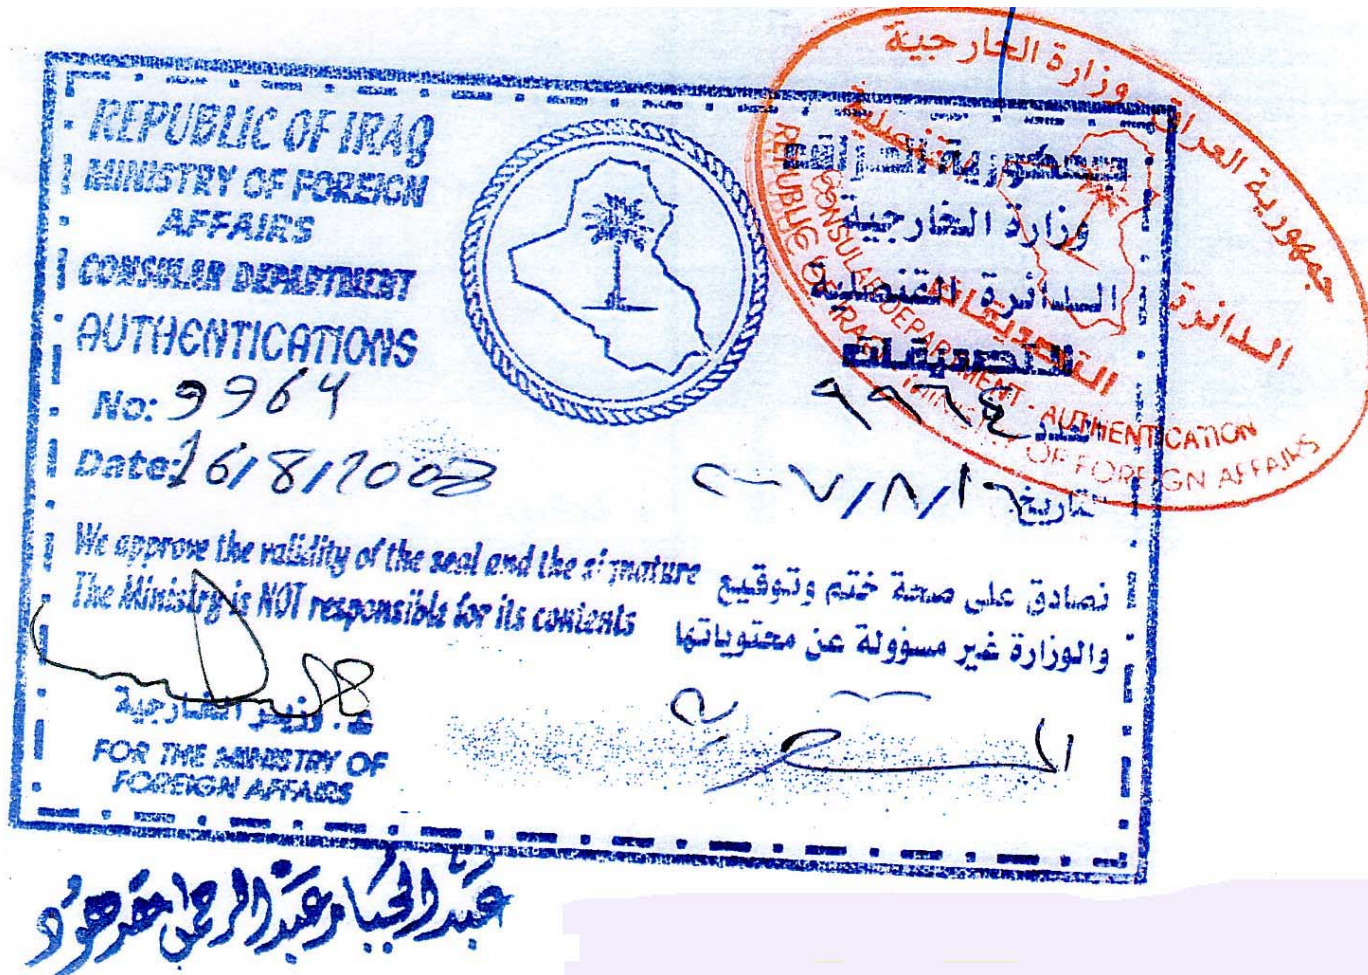 REPUBLIC OF IRAQ
MINISTRY OF FOREIGN
AFFAIRS
CONSULAR DEPARTMENT
AUTHENTICATIONS
No: 9964
Date: 16/8/200
We approve the validity of the seal and the signature
The Ministry is NOT responsible for its contents
ع. وزير الخارجية
FOR THE MINISTRY OF
FOREIGN AFFAIRS
جمهورية العراق
وزارة الخارجية
الدائرة القنصلية
التصديقات
العدد ٩٩٦٤
التاريخ ١٦/٨/٢٠٠٧
نصادق على صحة ختم وتوقيع
والوزارة غير مسؤولة عن محتوياتها
جمهورية العراق وزارة الخارجية
الدائرة القنصلية
التصديقات
CONSULAR DEPARTMENT - AUTHENTICATION
REPUBLIC OF IRAQ MINISTRY OF FOREIGN AFFAIRS
عبد الجبار عبد الرحمن